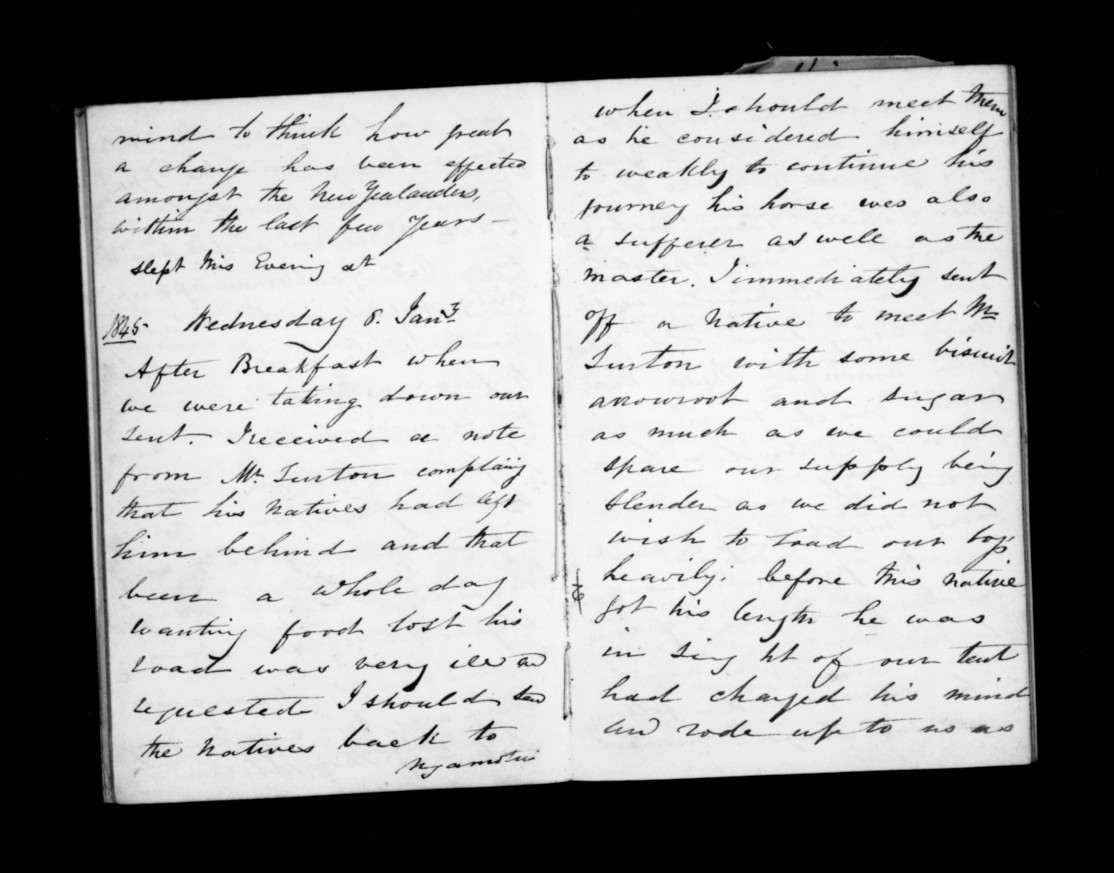 mind to think how great
a change has been effected
amongst the New Zealanders,
within the last few Years —
slept this Evening at
1845 Wednesday 8. Jany
After Breakfast when
we were taking down our
tent. I received a note
from Mr Turton complaing
that his Natives had left
him behind and that
been a whole day
wanting food lost his
road was very ill and
requested I should send
the Natives back to
Ngamotu
when I should meet them
as he considered himself
to weakly to continue his
journey his horse was also
a sufferer as well as the
master. I immediately sent
off a Native to meet Mr
Turton with some biscuit
arrowroot and sugar
as much as we could
spare our supply being
slender as we did not
wish to load our boys
heavily. before this native
got his length he was
in sight of our tent
had changed his mind
and rode up to us as